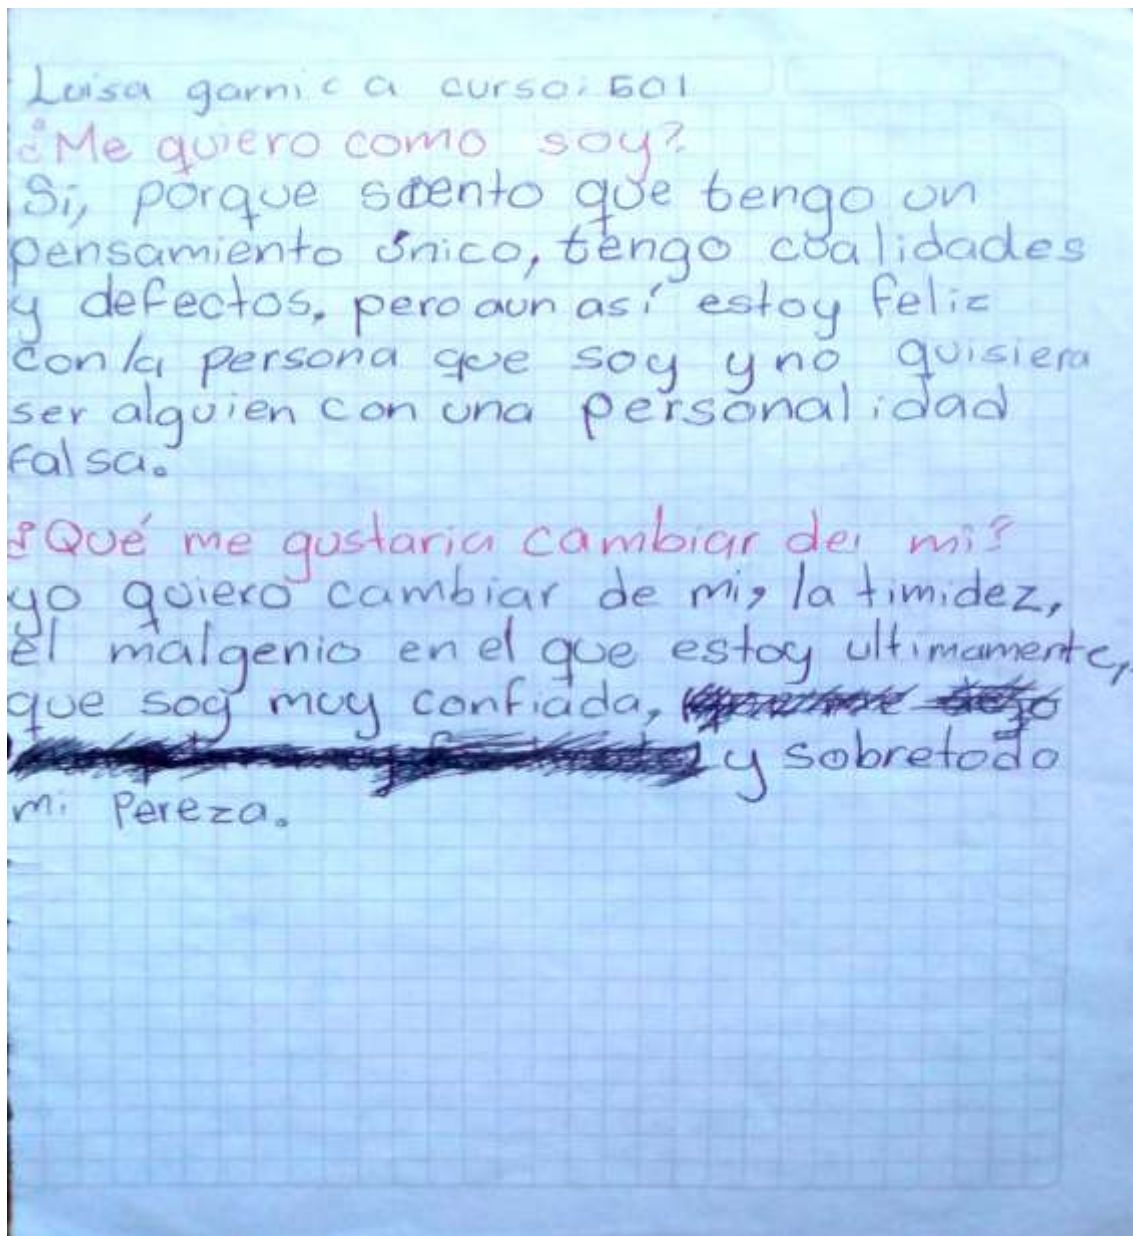 Luisa garnica curso: 601
¿Me quiero como soy?
Si, porque siento que tengo un
pensamiento único, tengo cualidades
y defectos, pero aun así estoy feliz
con la persona que soy y no quisiera
ser alguien con una personalidad
falsa.
¿Qué me gustaria cambiar de mi?
yo quiero cambiar de mi, la timidez,
el malgenio en el que estoy ultimamente,
que soy muy confiada,
y sobretodo
mi Pereza.